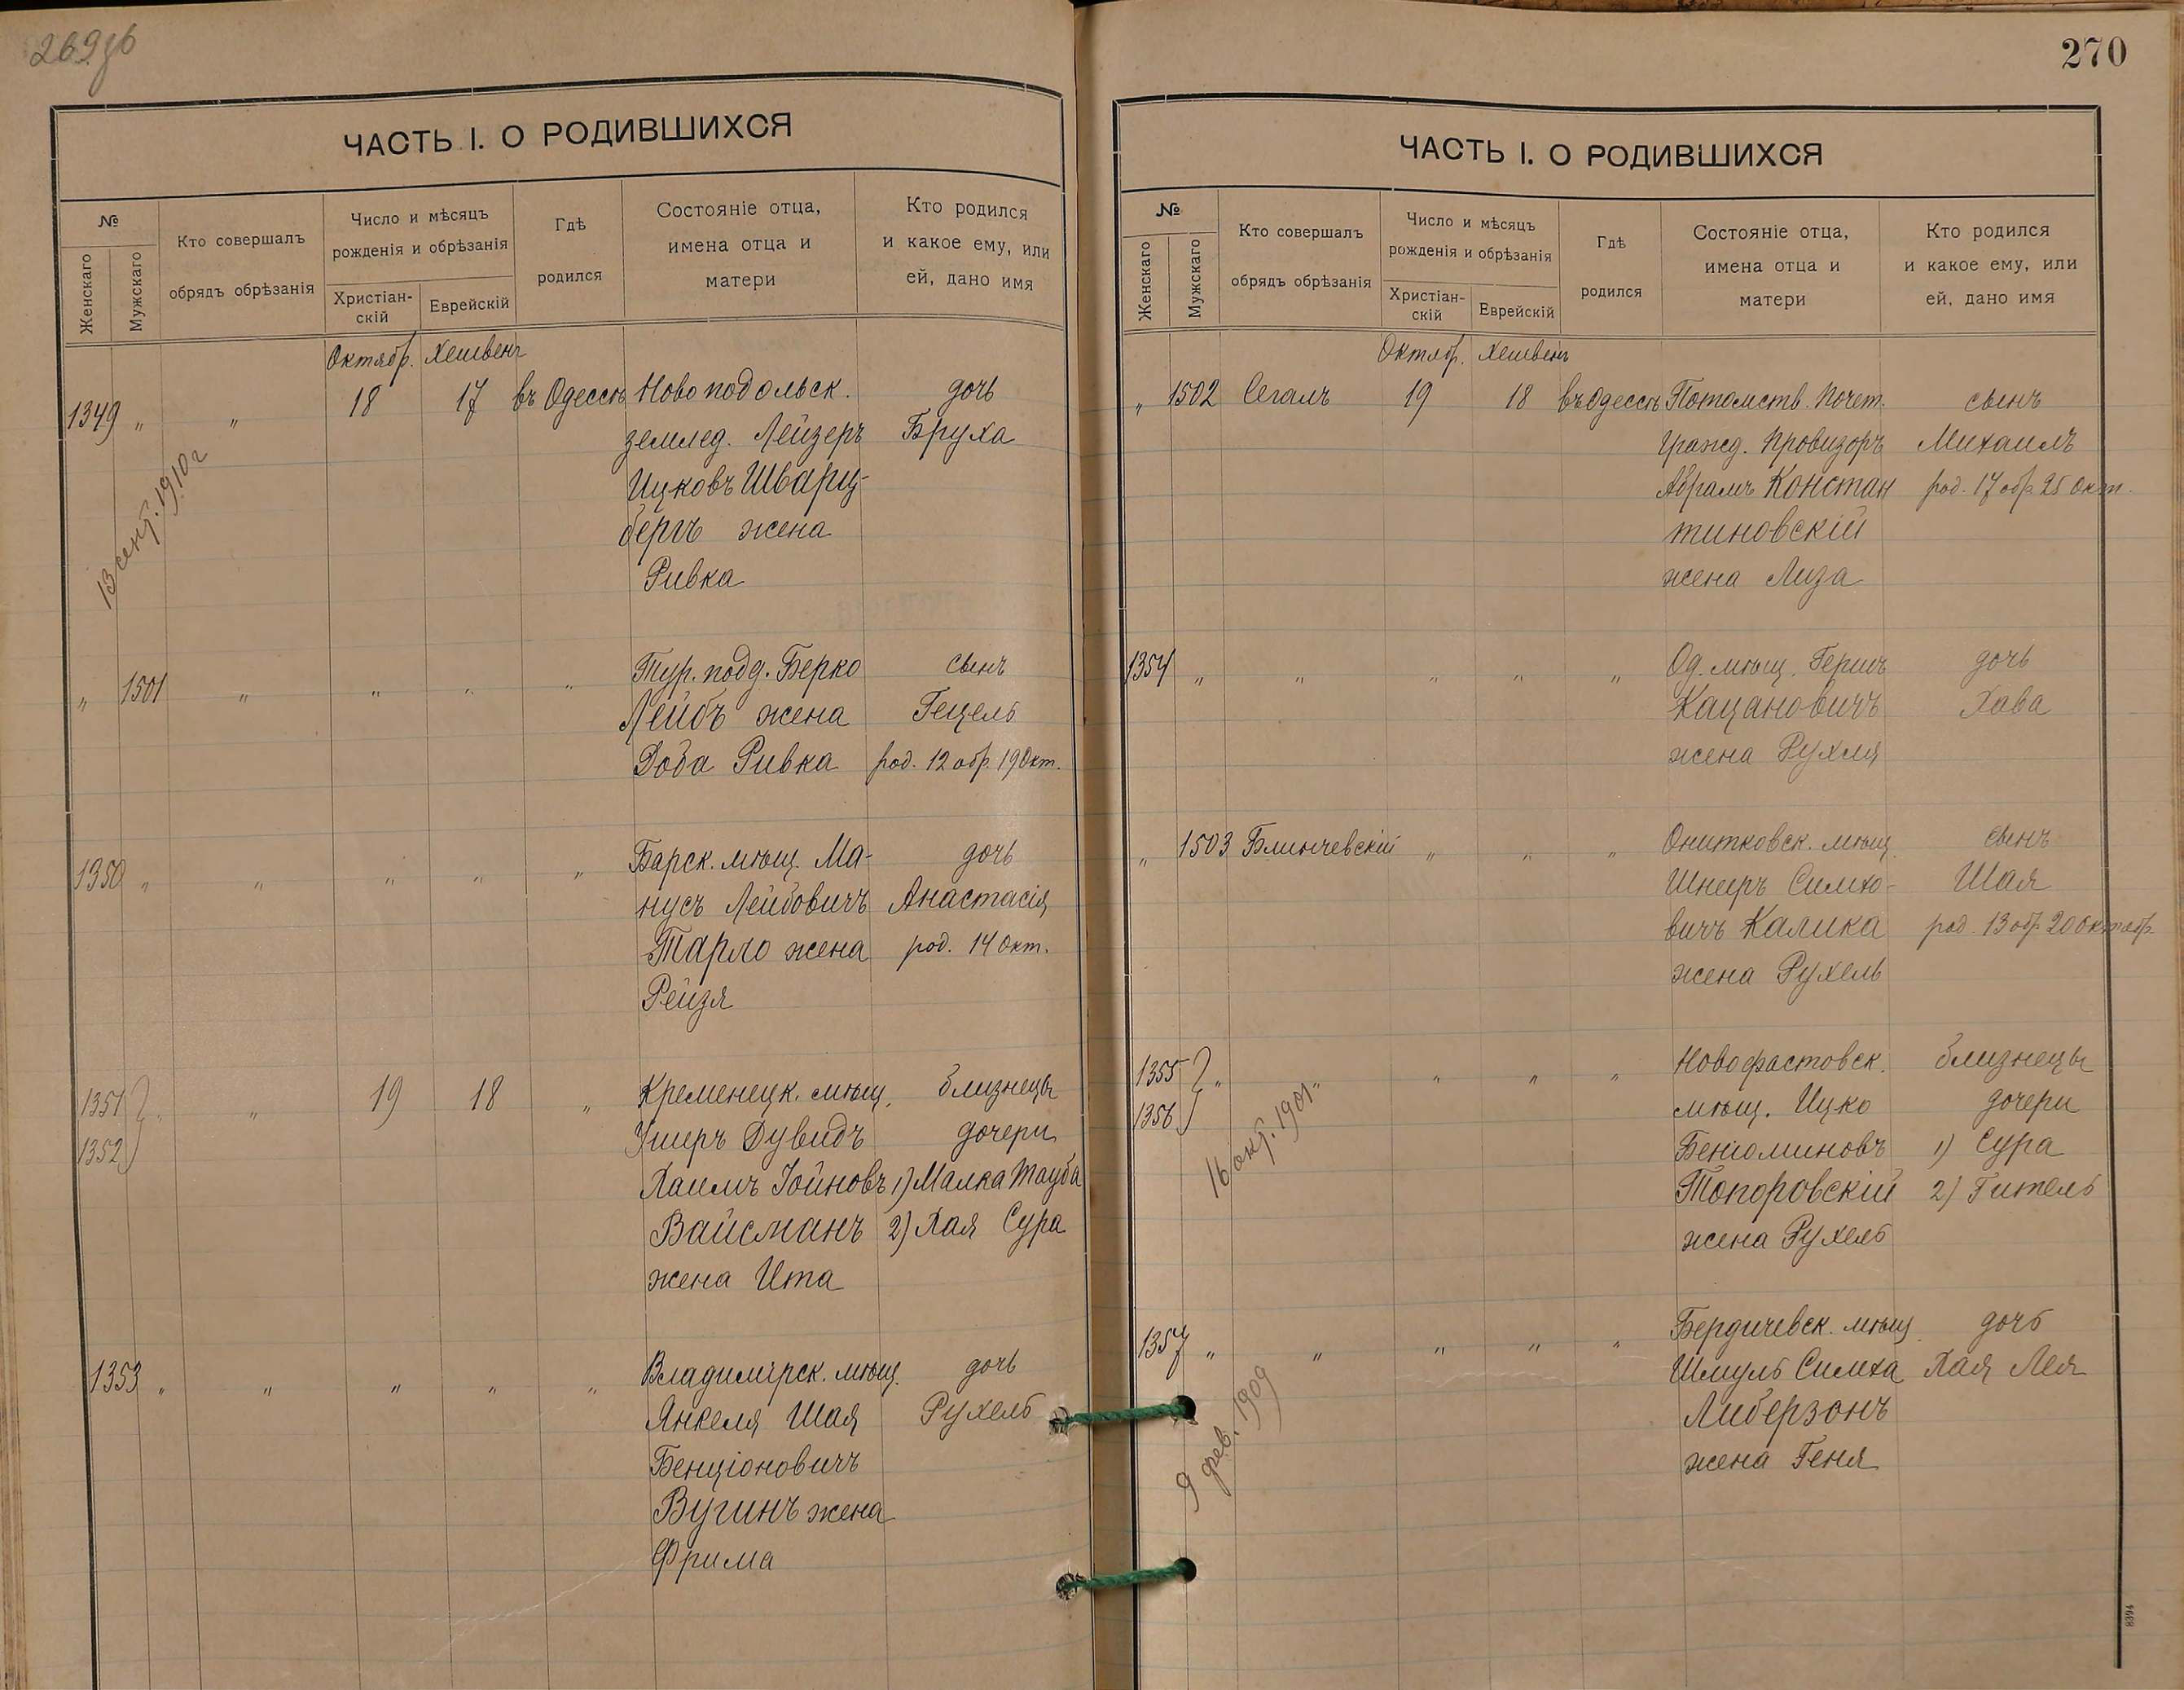 269об
ЧАСТЬ I. О РОДИВШИХСЯ
№
Женскаго
Мужскаго
Кто совершалъ
обрядъ обрѣзанія
Число и мѣсяцъ
рожденія и обрѣзанія
Христіан-
скій
Еврейскій
Гдѣ
родился
Состояніе отца,
имена отца и
матери
Кто родился
и какое ему, или
ей, дано имя
Октябр. Хешвенъ
1349 " " 18 17 въ Одессѣ Новоподольск. дочь
землед. Лейзеръ Бруха
Ицковъ Шварц-
бергъ жена
Ривка
13 сент. 1910 г
" 1501 " " " " Тур. подд. Берко сынъ
Лейбъ жена Гецель
Доба Ривка род. 12 обр. 19 Окт.
1350 " " " " " Барск. мѣщ. Ма- дочь
нусъ Лейбовичъ Анастасія
Тарло жена род. 14 Окт.
Рейзя
1351 " " 19 18 " Кременецк. мѣщ. близнецы
1352 Ушеръ Дувидъ дочери
Хаимъ Іойновъ 1) Малка Тауба
Вайсманъ 2) Хая Сура
жена Ита
1353 " " " " " Владимірск. мѣщ. дочь
Янкеля Шая Рухель
Бенціоновичъ
Вугинъ жена
Фрима
270
ЧАСТЬ I. О РОДИВШИХСЯ
№
Женскаго
Мужскаго
Кто совершалъ
обрядъ обрѣзанія
Число и мѣсяцъ
рожденія и обрѣзанія
Христіан-
скій
Еврейскій
Гдѣ
родился
Состояніе отца,
имена отца и
матери
Кто родился
и какое ему, или
ей, дано имя
Октябр. Хешвенъ
" 1502 Сегалъ 19 18 въ Одессѣ Потомств. почет. сынъ
гражд. Провизоръ Михаилъ
Абрамъ Констан род. 17 обр 25 Окт.
тиновскій
жена Лиза
1354 " " " " " Од. мѣщ. Гершъ дочь
Кацановичъ Хава
жена Рухля
" 1503 Блинчевскій " " " Онитковск. мѣщ. сынъ
Шнеиръ Симхо- Шая
вичъ Калика род 13 обр 20 Октябр.
жена Рухель
1355 " " " " Новофастовск. близнецы
1356 мѣщ. Ицко дочери
Беніоминовъ 1) Сура
Топоровскій 2) Гитель
жена Рухель
16 окт. 1901
1357 " " " " " Бердичевск. мѣщ. дочь
Шмуль Симха Хая Лея
Либерзонъ
жена Геня
9 фев. 1909
8394